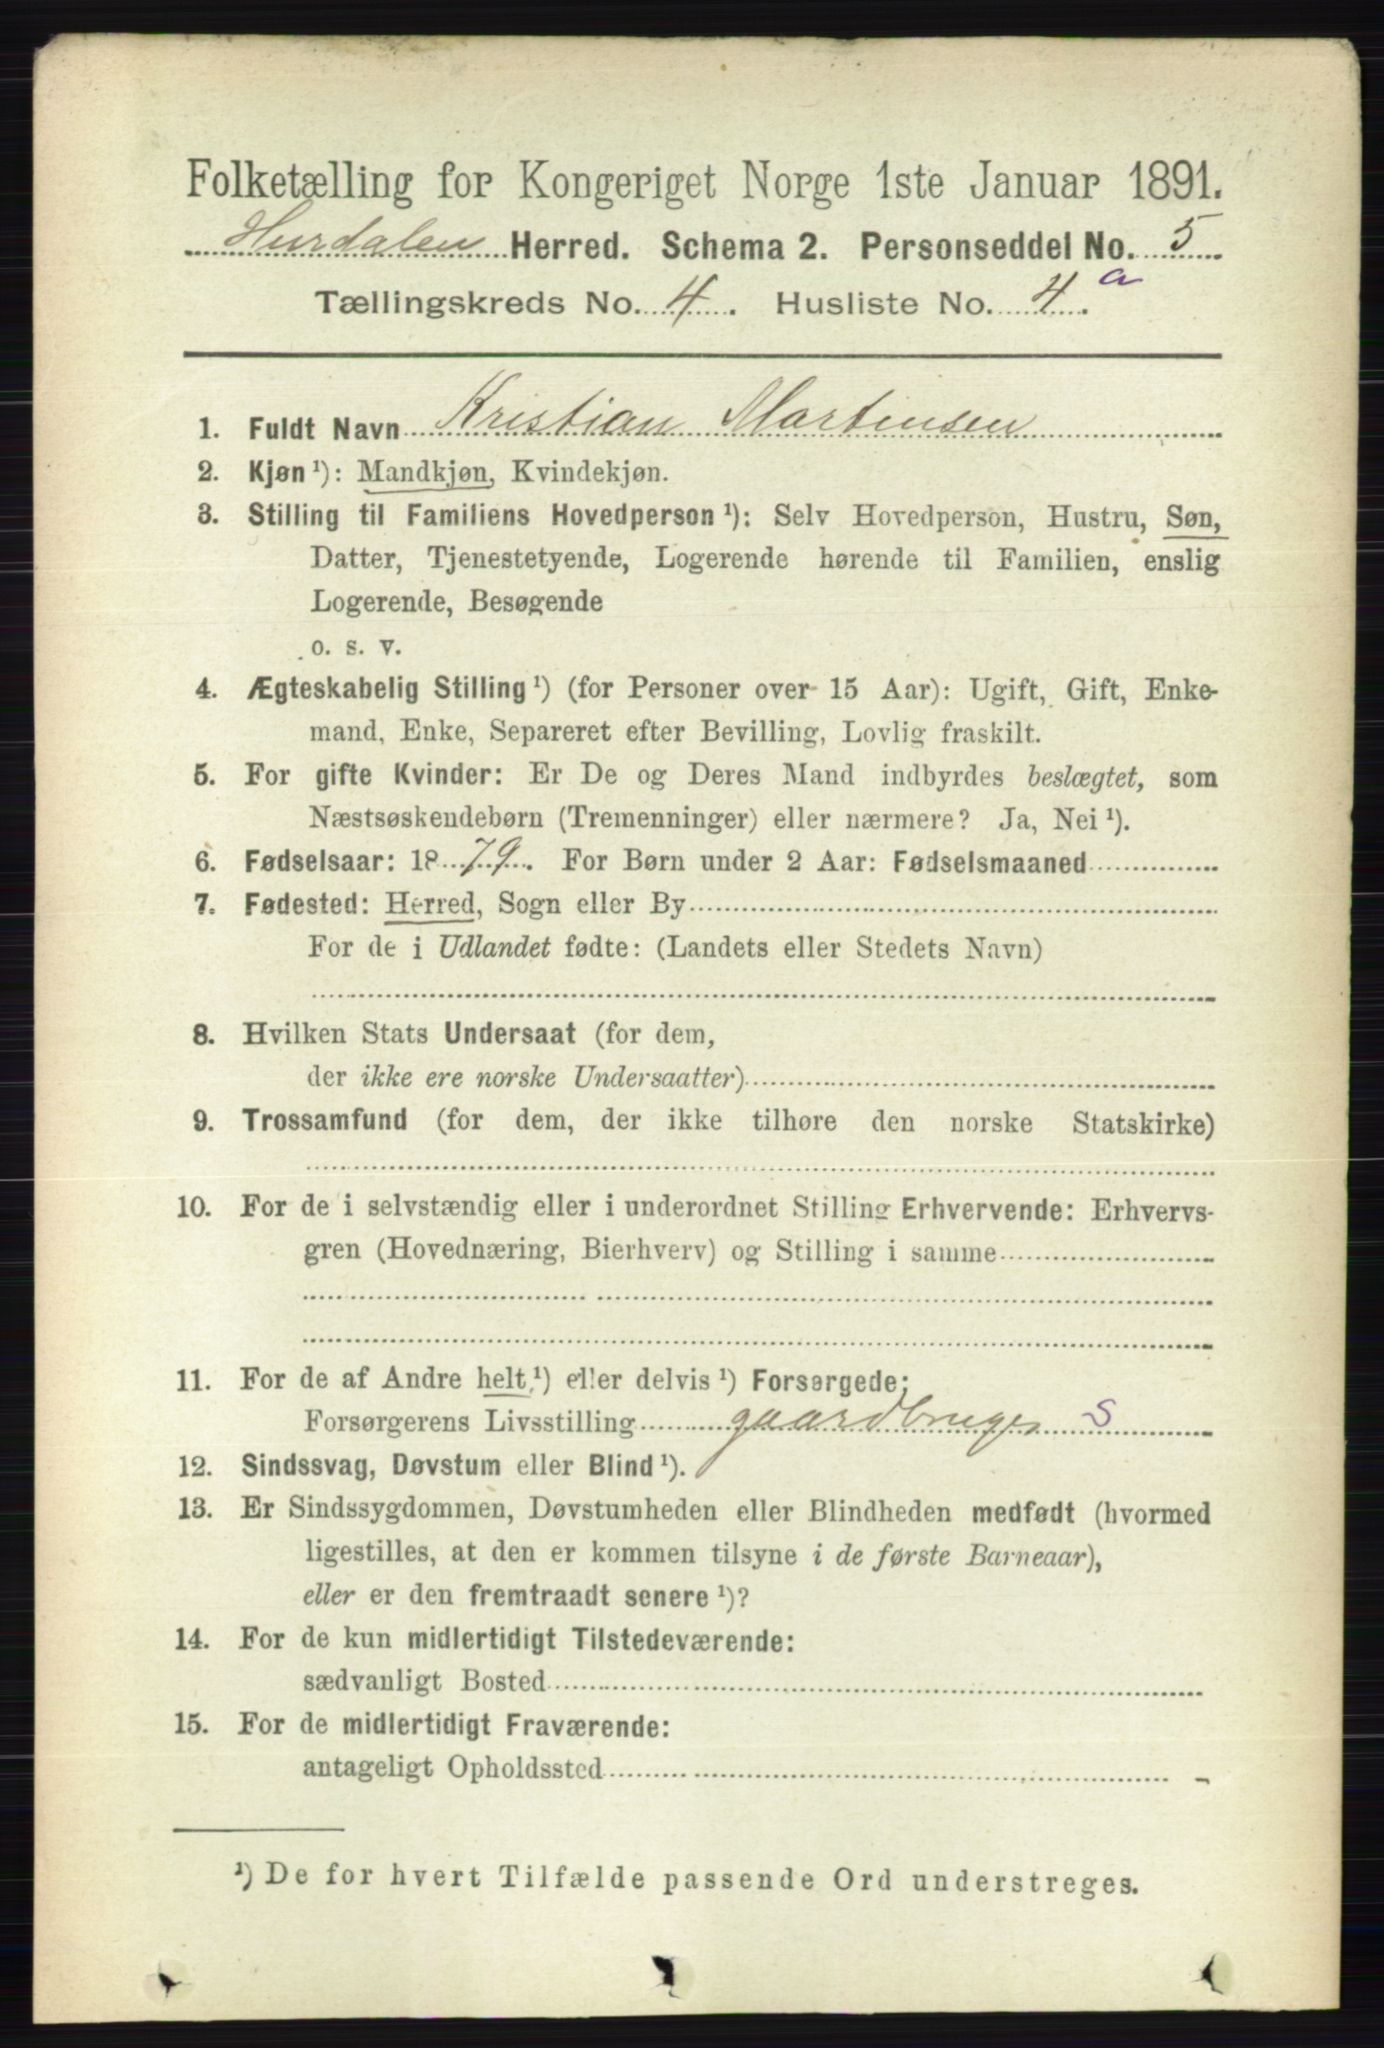 Folketælling for Kongeriget Norge 1ste Januar 1891.
Hurdalen Herred. Schema 2. Personseddel No. 5
Tællingskreds No. 4. Husliste No. 4.a
1. Fuldt Navn Kristian Martinsen
2. Kjøn ¹): Mandkjøn, Kvindekjøn.
3. Stilling til Familiens Hovedperson ¹): Selv Hovedperson, Hustru, Søn,
Datter, Tjenestetyende, Logerende hørende til Familien, enslig
Logerende, Besøgende
o. s. v.
4. Ægteskabelig Stilling ¹) (for Personer over 15 Aar): Ugift, Gift, Enke-
mand, Enke, Separeret efter Bevilling, Lovlig fraskilt.
5. For gifte Kvinder: Er De og Deres Mand indbyrdes beslægtet, som
Næstsøskendebørn (Tremenninger) eller nærmere? Ja, Nei ¹).
6. Fødselsaar: 1879. For Børn under 2 Aar: Fødselsmaaned
7. Fødested: Herred, Sogn eller By
For de i Udlandet fødte: (Landets eller Stedets Navn)
8. Hvilken Stats Undersaat (for dem,
der ikke ere norske Undersaatter)
9. Trossamfund (for dem, der ikke tilhøre den norske Statskirke)
10. For de i selvstændig eller i underordnet Stilling Erhvervende: Erhvervs-
gren (Hovednæring, Bierhverv) og Stilling i samme
11. For de af Andre helt ¹) eller delvis ¹) Forsørgede:
Forsørgerens Livsstilling gaardbruger S
12. Sindssvag, Døvstum eller Blind ¹).
13. Er Sindssygdommen, Døvstumheden eller Blindheden medfødt (hvormed
ligestilles, at den er kommen tilsyne i de første Barneaar),
eller er den fremtraadt senere ¹)?
14. For de kun midlertidigt Tilstedeværende:
sædvanligt Bosted
15. For de midlertidigt Fraværende:
antageligt Opholdssted
¹) De for hvert Tilfælde passende Ord understreges.